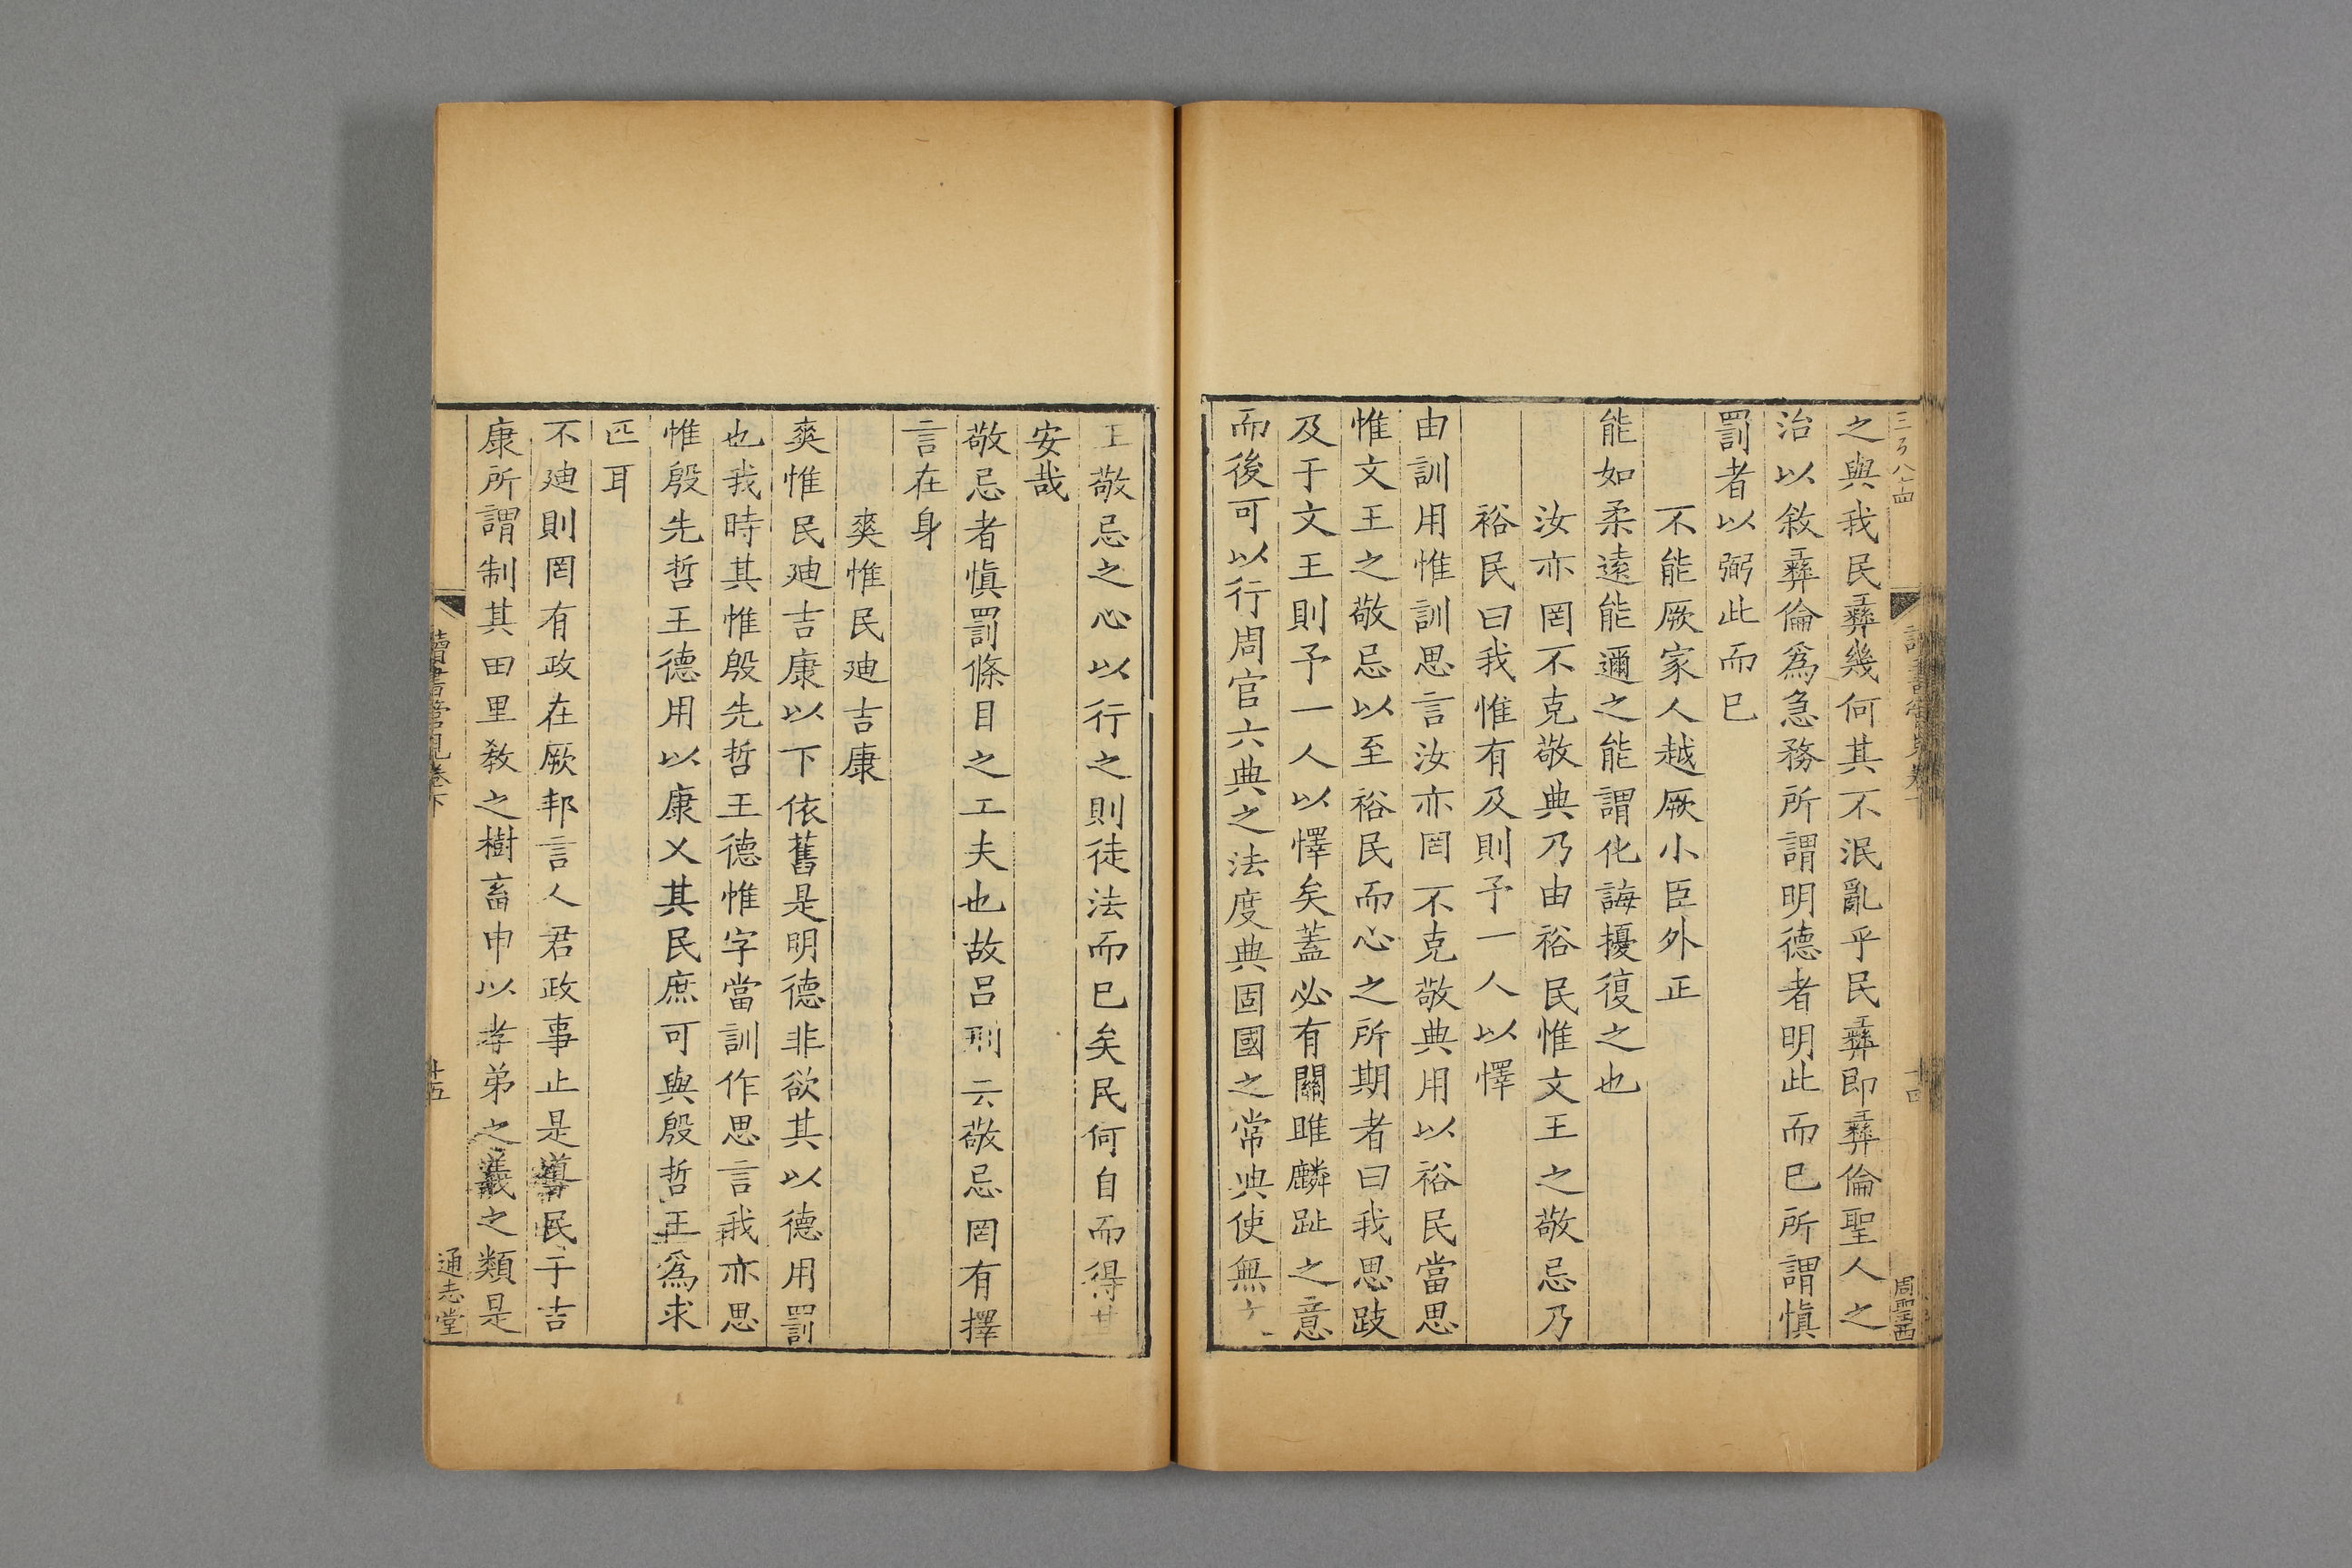 之與我民彝幾何其不泯亂乎民彝即彝倫聖人之
治以敘彝倫爲急務所謂明德者明此而巳所謂愼
罰者以弼此而巳
不能厥家人越厥小臣外正
能如柔遠能邇之能謂化誨擾復之也
汝亦罔不克敬典乃由裕民惟文王之敬忌乃
裕民曰我惟有及則予一人以懌
由訓用惟訓思言汝亦罔不克敬典用以裕民當思
惟文王之敬忌以至裕民而心之所期者曰我思跂
及于文王則予一人以懌矣蓋必有關雎麟趾之意
而後可以行周官六典之法度典固國之常典使無文
王敬忌之心以行之則徒法而巳矣民何自而得其
安哉
敬忌者愼罰條目之工夫也故呂刑云敬忌罔有擇
言在身
爽惟民廸吉康
爽惟民廸吉康以下依舊是明德非欲其以德用罰
也我時其惟殷先哲王德惟字當訓作思言我亦思
惟殷先哲王德用以康乂其民庶可與殷哲王爲求
匹耳
不廸則罔有政在厥邦言人君政事止是導民于吉
康所謂制其田里教之樹畜申以孝弟之義之類是
讀書管見卷下
廿五
通志堂
十四
周聖西